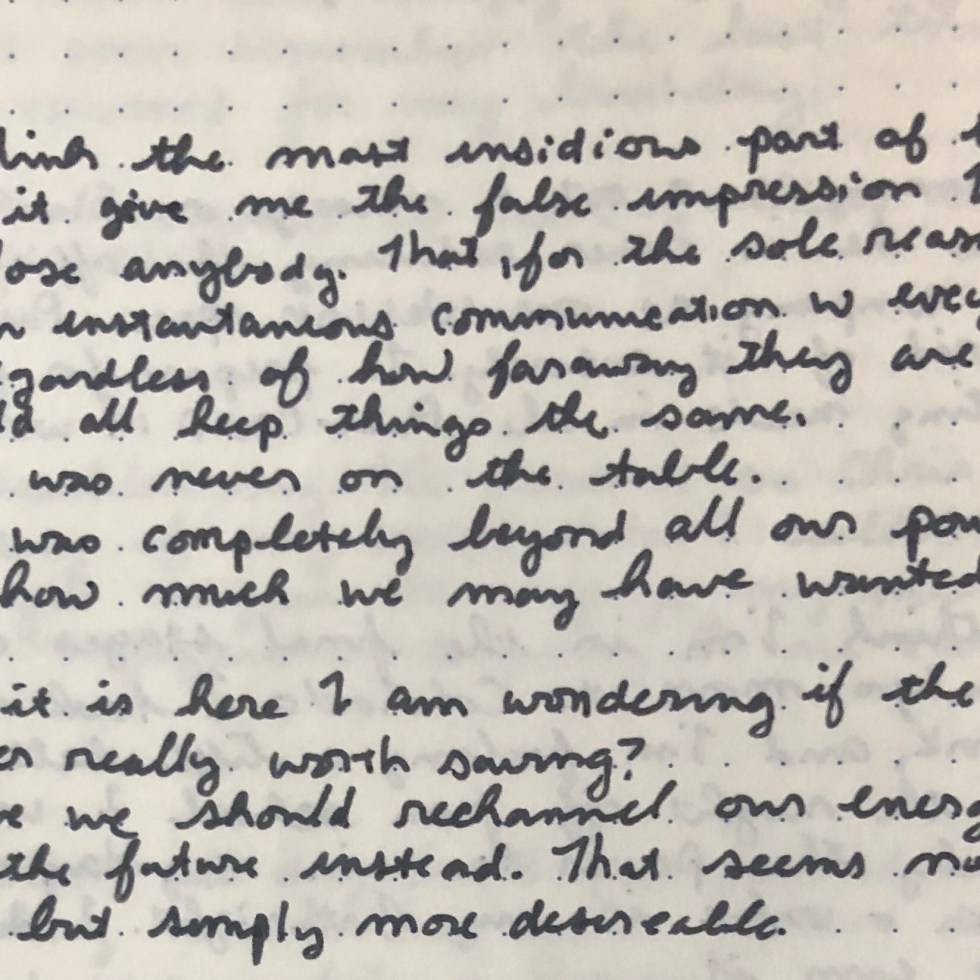 hink the most insidious part of
it give me the false impression
lose anybody. That, for the sole reas
n instantaneous communication w eve
gardless of how faraway they are
ld all keep things the same.
was never on the table.
was completely beyond all our pow
how much we may have wanted
it is here I am wondering if the
er really worth saving?
e we should rechannel our energ
the future instead. That seems
but simply more desereable.